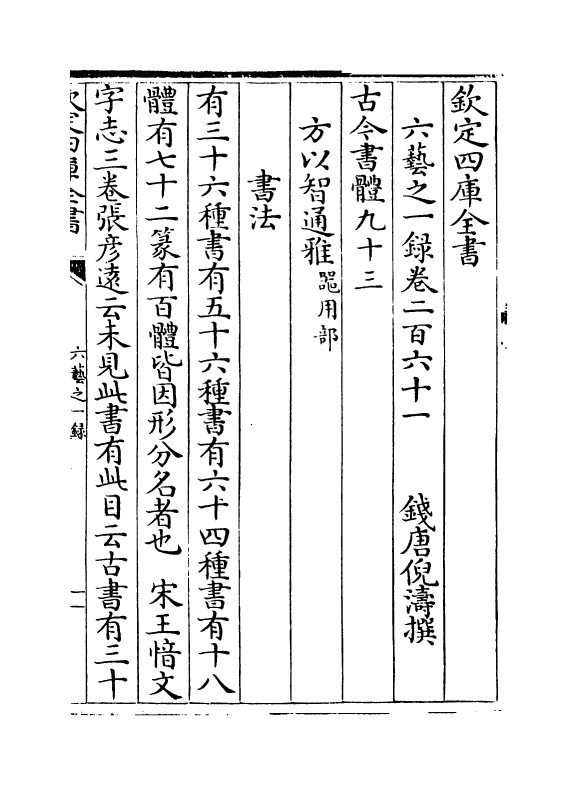 欽定四庫全書
六藝之一録卷二百六十一　錢唐倪濤撰
古今書體九十三
方以智通雅器用部
書法
有三十六種書有五十六種書有六十四種書有十八
體有七十二篆有百體皆因形分名者也　宋王愔文
字志三卷張彦遠云未見此書有此目云古書有三十
六藝之一録